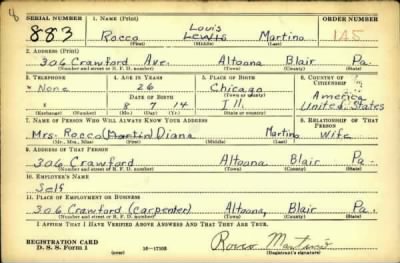 8
SERIAL NUMBER 1. NAME (Print) ORDER NUMBER
Louis
883 Rocco Lewis Martino 145
(First) (Middle) (Last)
2. ADDRESS (Print)
306 Crawford Ave. Altoona Blair Pa.
(Number and street or R. F. D. number) (Town) (County) (State)
3. TELEPHONE 4. AGE IN YEARS 5. PLACE OF BIRTH 6. COUNTRY OF CITIZENSHIP
None 26 Chicago America
DATE OF BIRTH (Town or county)
8 7 14 Ill. United States
(Exchange) (Number) (Mo.) (Day) (Yr.) (State or country)
7. NAME OF PERSON WHO WILL ALWAYS KNOW YOUR ADDRESS 8. RELATIONSHIP OF THAT PERSON
Mrs. Rocco (Martin) Diana Martino Wife
(Mr., Mrs., Miss) (First) (Middle) (Last)
9. ADDRESS OF THAT PERSON
306 Crawford Altoona Blair Pa.
(Number and street or R. F. D. number) (Town) (County) (State)
10. EMPLOYER'S NAME
Self
11. PLACE OF EMPLOYMENT OR BUSINESS
306 Crawford (carpenter) Altoona, Blair Pa.
(Number and street or R. F. D. number) (Town) (County) (State)
I AFFIRM THAT I HAVE VERIFIED ABOVE ANSWERS AND THAT THEY ARE TRUE.
REGISTRATION CARD
D. S. S. Form 1 (over) 16—17105 Rocco Martino
(Registrant's signature)